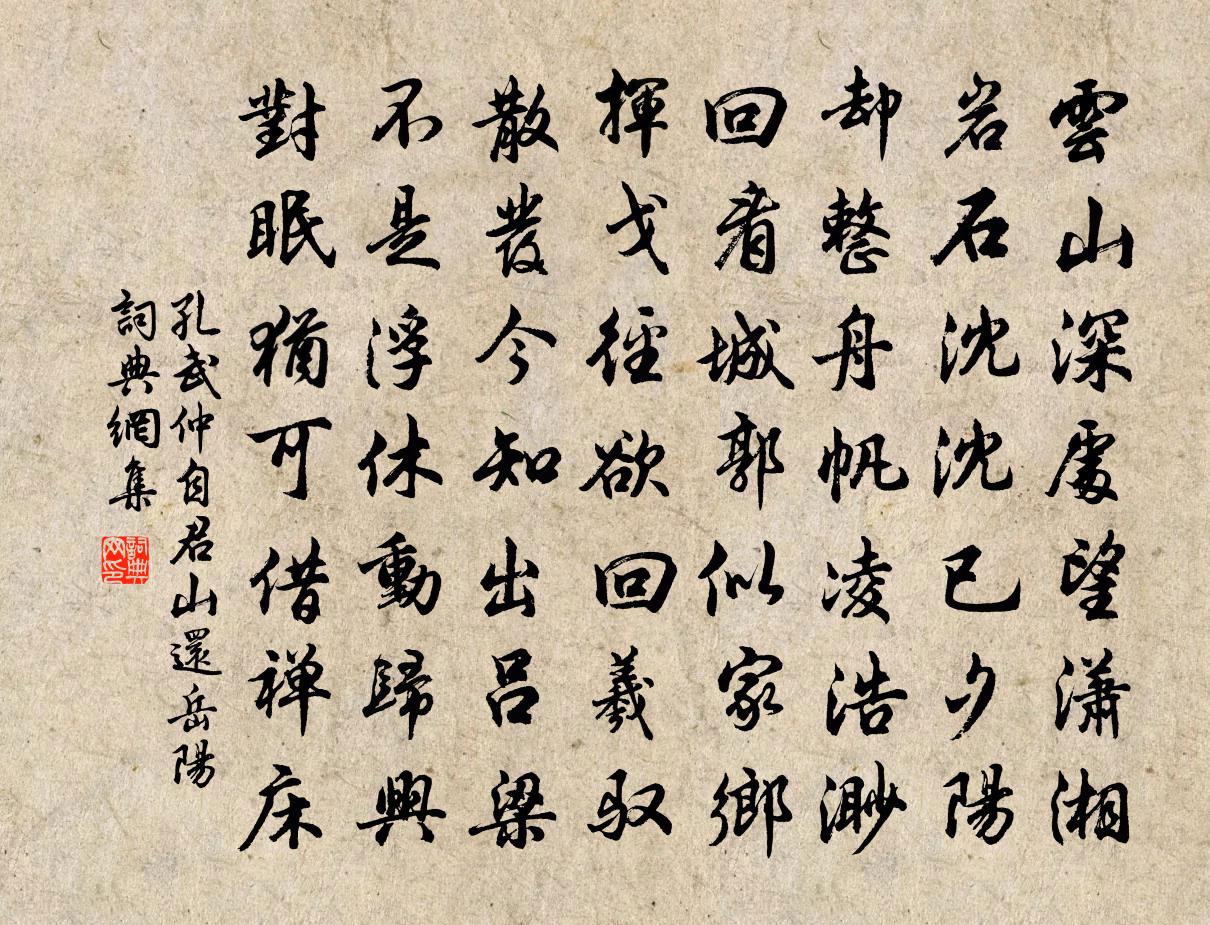 雲山深處望瀟湘
岩石沈沈已夕陽
却整舟帆凌浩渺
回看城郭似家鄉
揮戈徑欲回羲馭
散發今知出呂梁
不是浮休動歸興
對眠猶可借禅床
孔武仲自君山還岳陽
詞典網集
詞典网印